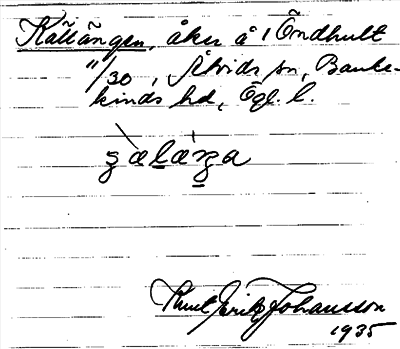 Källängen, åker å 1 Öndhult
11/30, Åtvids sn, Banke-
kinds hd, Ögl. l.
Knut Erik Johansson
1935